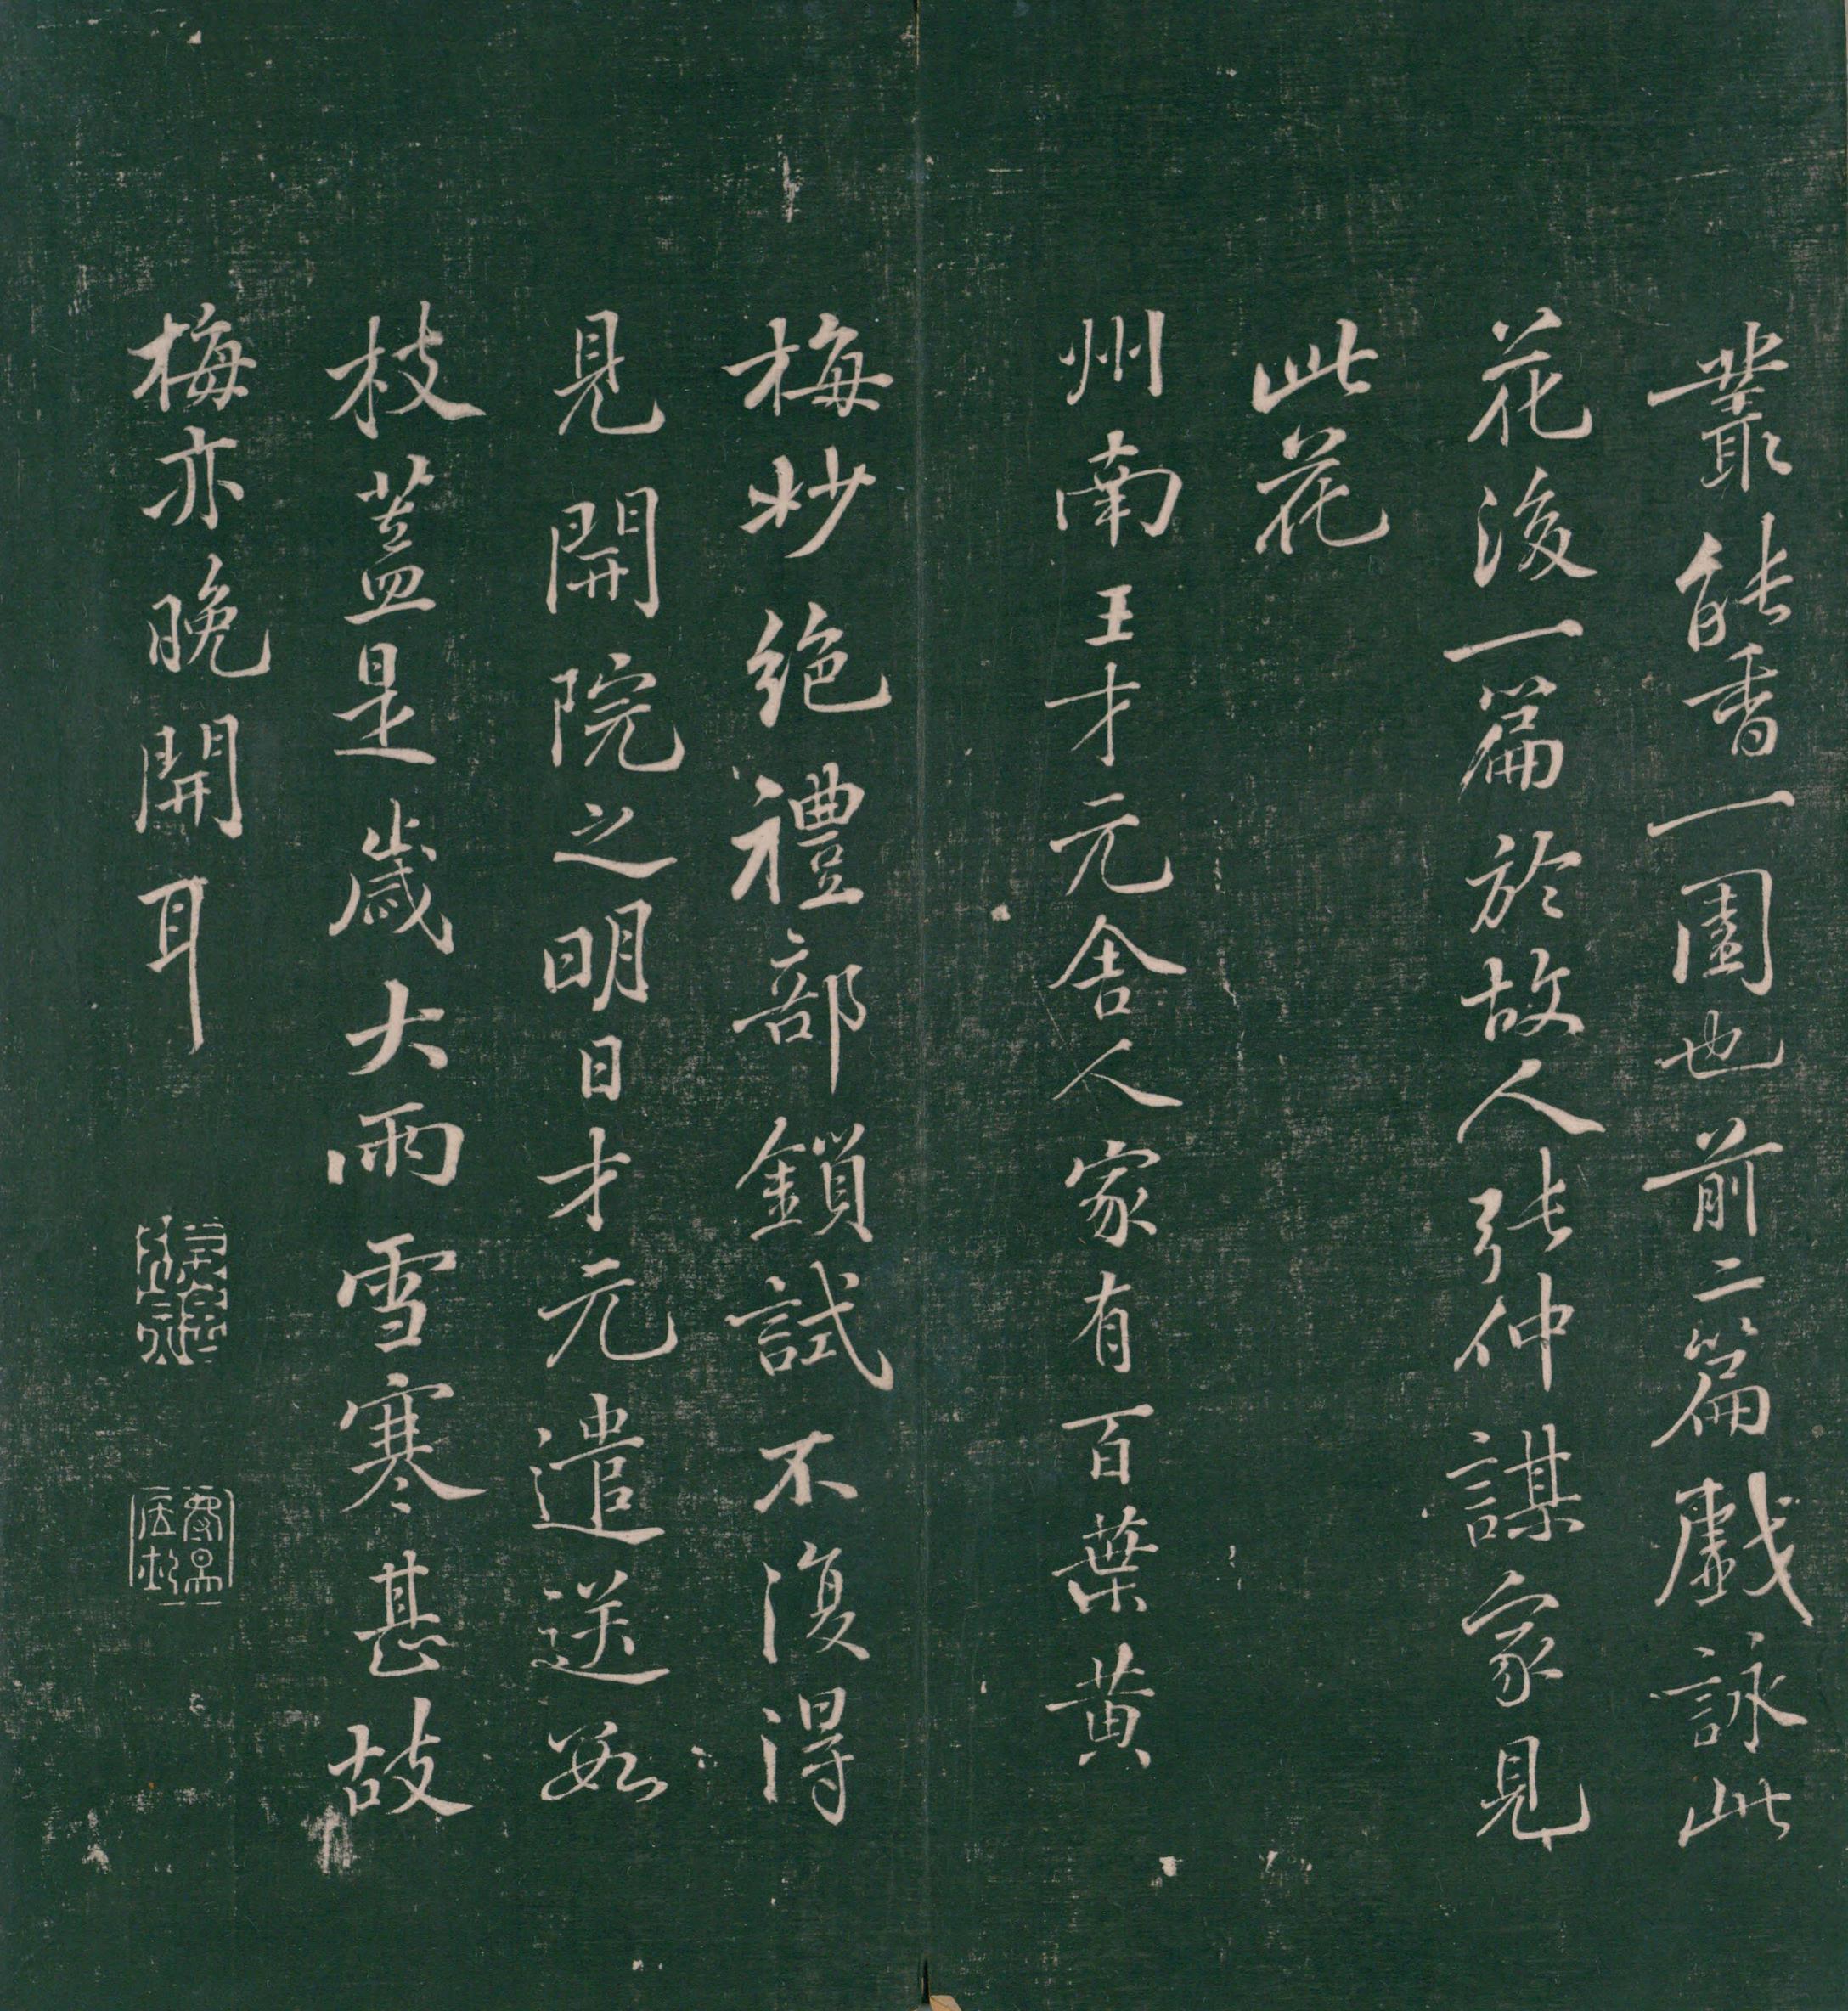 叢能香一園也前二篇戲詠此
花後一篇於故人張仲謀家見
此花
州南王才元舍人家有百葉黃
梅妙絕禮部鎖試不復得
見開院之明日才元遣送數
枝蓋是歲大雨雪寒甚故
梅亦晚開耳